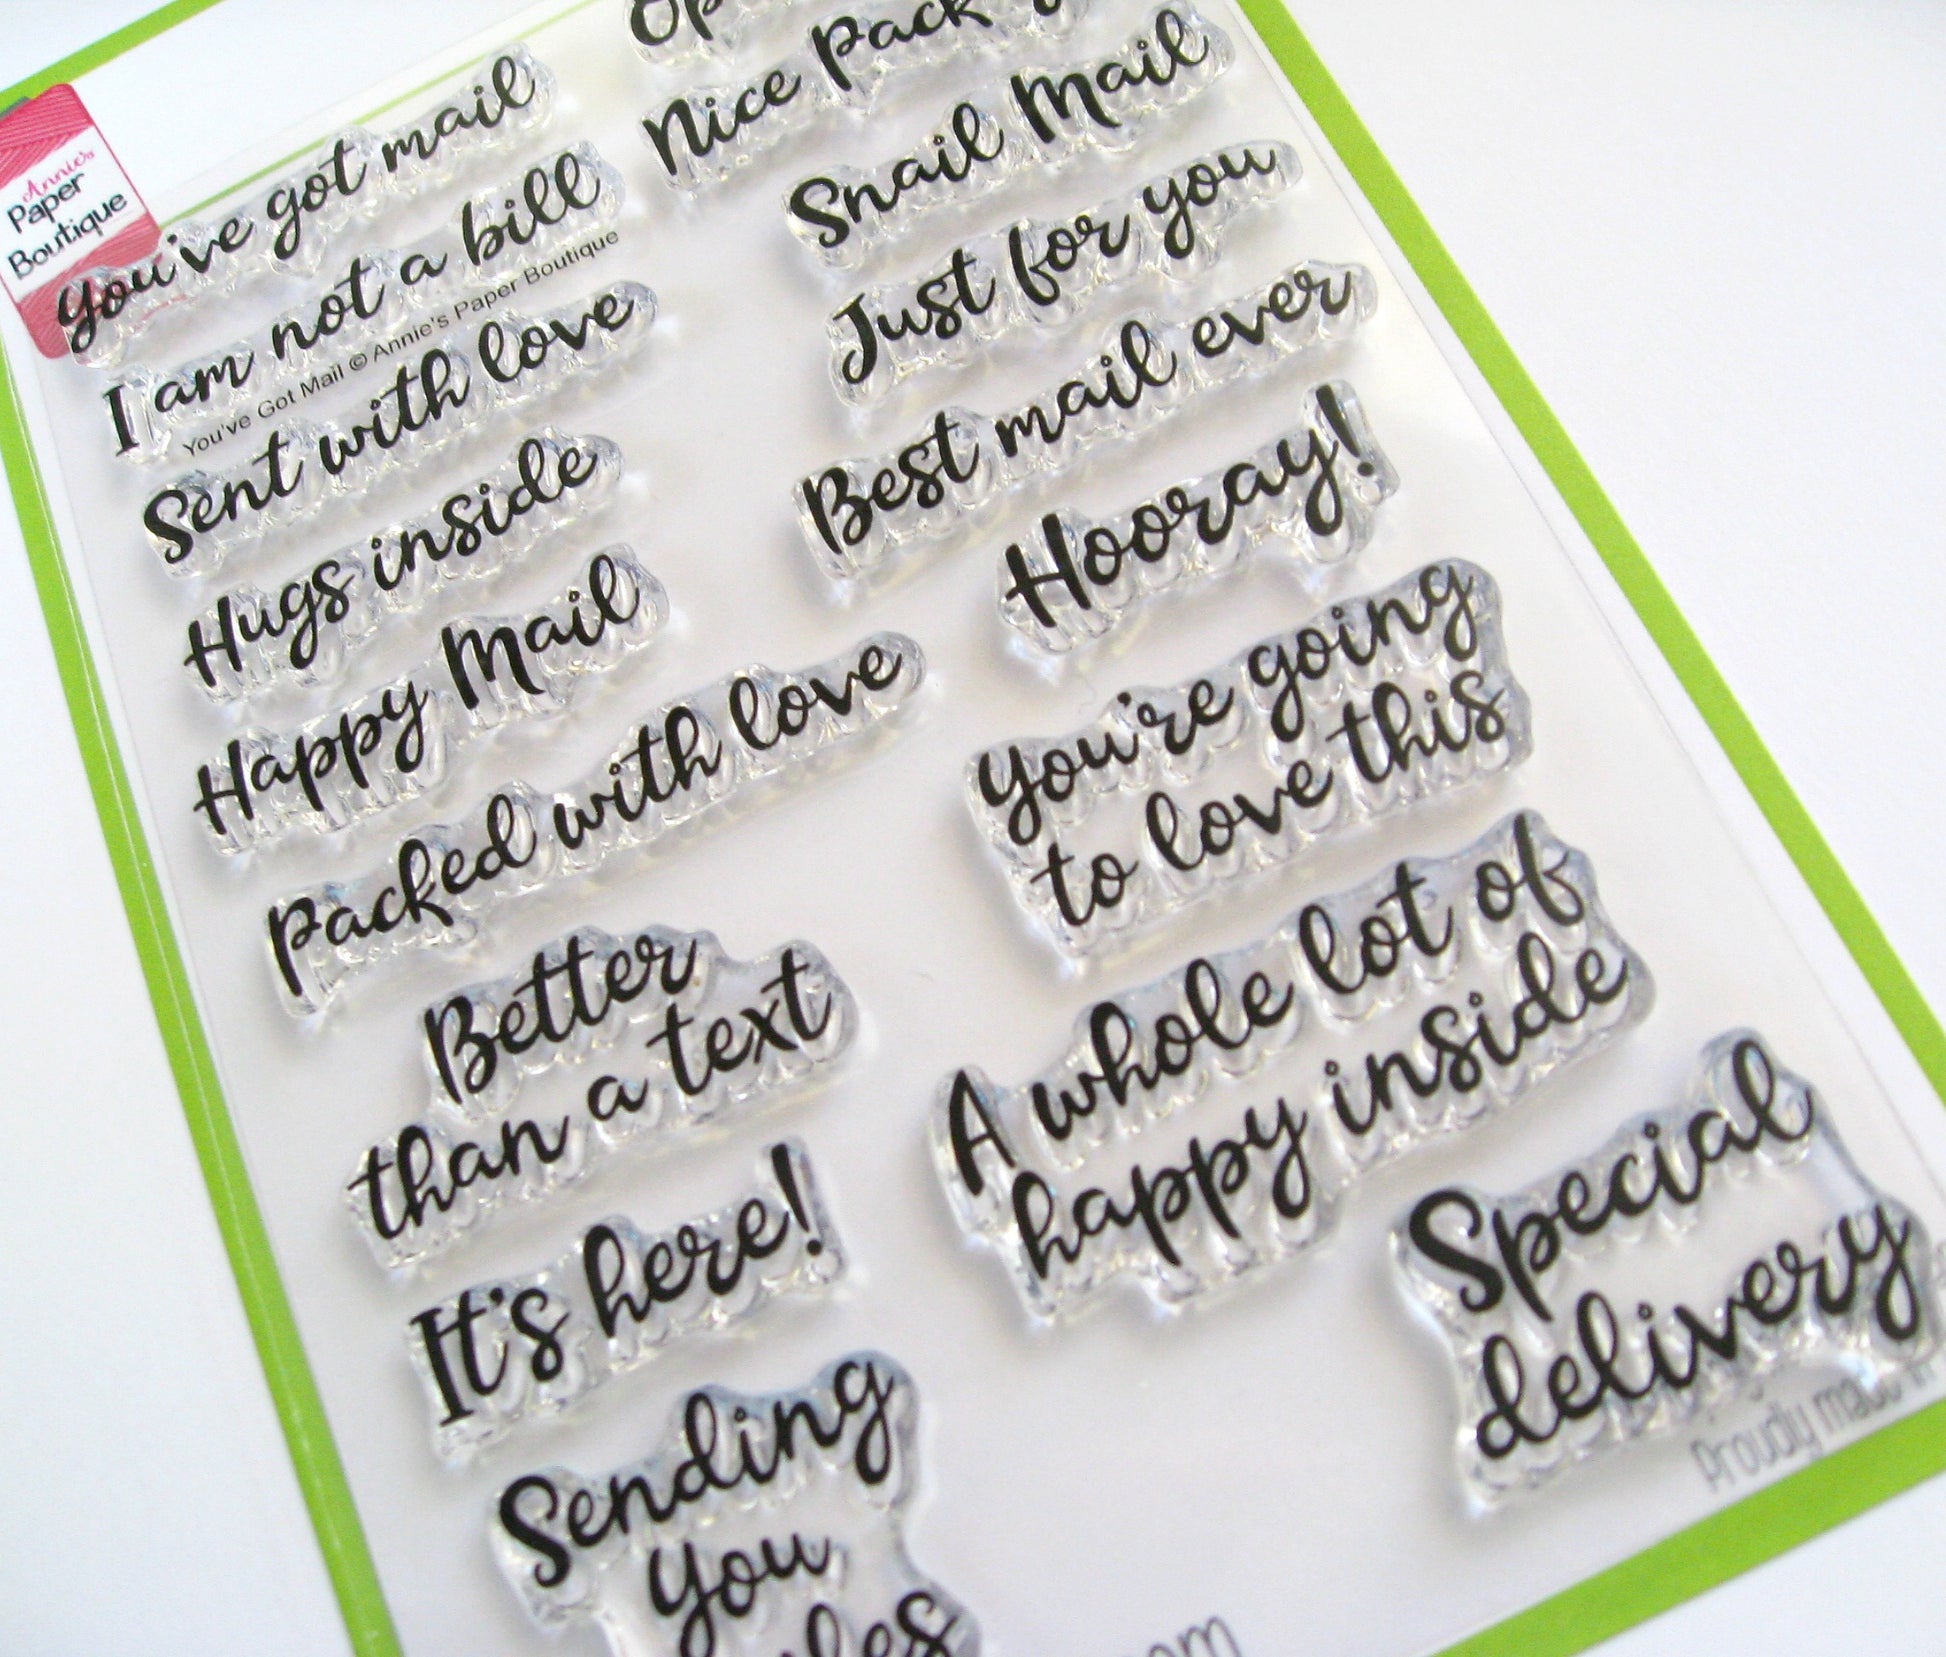 Annie's
Paper
Boutique
You've got mail
I am not a bill
You've Got Mail © Annie's Paper Boutique
Sent with love
Hugs inside
Happy Mail
Packed with love
Better
than a text
It's here!
Sending
you
Nice
Snail Mail
Just for you
Best mail ever
Hooray!
You're going
to love this
A whole lot of
happy inside
Special
delivery
Proudly made